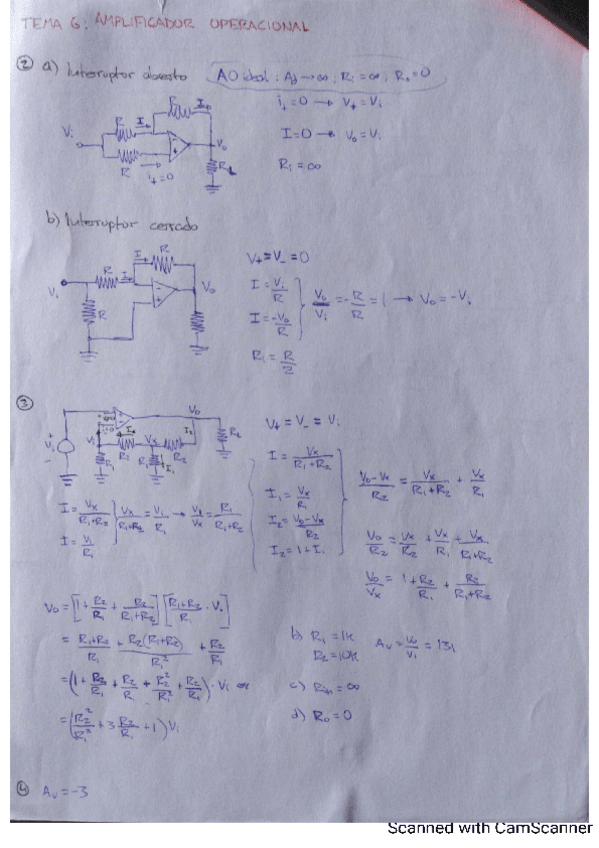 TEMA 6: AMPLIFICADOR OPERACIONAL
② a) Interruptor abierto AO ideal: Ad → ∞; Ri = ∞; Ro = 0
i+ = 0 → V+ = Vi
I = 0 → Vo = Vi
Ri = ∞
Vi R R I I R i+ = 0 Vo RL
b) Interruptor cerrado
V+ = V- = 0
I = Vi/R
I = -Vo/R
Vo/Vi = -R/R = 1 → Vo = -Vi
Ri = R/2
Vi R I R I R Vo
③
V+ = V- = Vi
Vi R1 I R2 Vx R1 I1 R2 I2 Vo RL
I = Vx/(R1+R2)
I = Vi/R1
Vx/(R1+R2) = Vi/R1 → Vi/Vx = R1/(R1+R2)
I = Vx/(R1+R2)
I1 = Vx/R1
I2 = (Vo-Vx)/R2
I2 = I + I1
(Vo-Vx)/R2 = Vx/(R1+R2) + Vx/R1
Vo/R2 = Vx/R2 + Vx/R1 + Vx/(R1+R2)
Vo/Vx = 1 + R2/R1 + R2/(R1+R2)
Vo = [1 + R2/R1 + R2/(R1+R2)] [(R1+R2)/R1 · Vi]
= (R1+R2)/R1 + R2(R1+R2)/R1² + R2/R1
= (1 + R2/R1 + R2/R1 + R2²/R1² + R2/R1) · Vi
= (R2²/R1² + 3 R2/R1 + 1) Vi
b) R1 = 1k
R2 = 10k
Av = Vo/Vi = 131
c) Rin = ∞
d) Ro = 0
④ Av = -3
Scanned with CamScanner